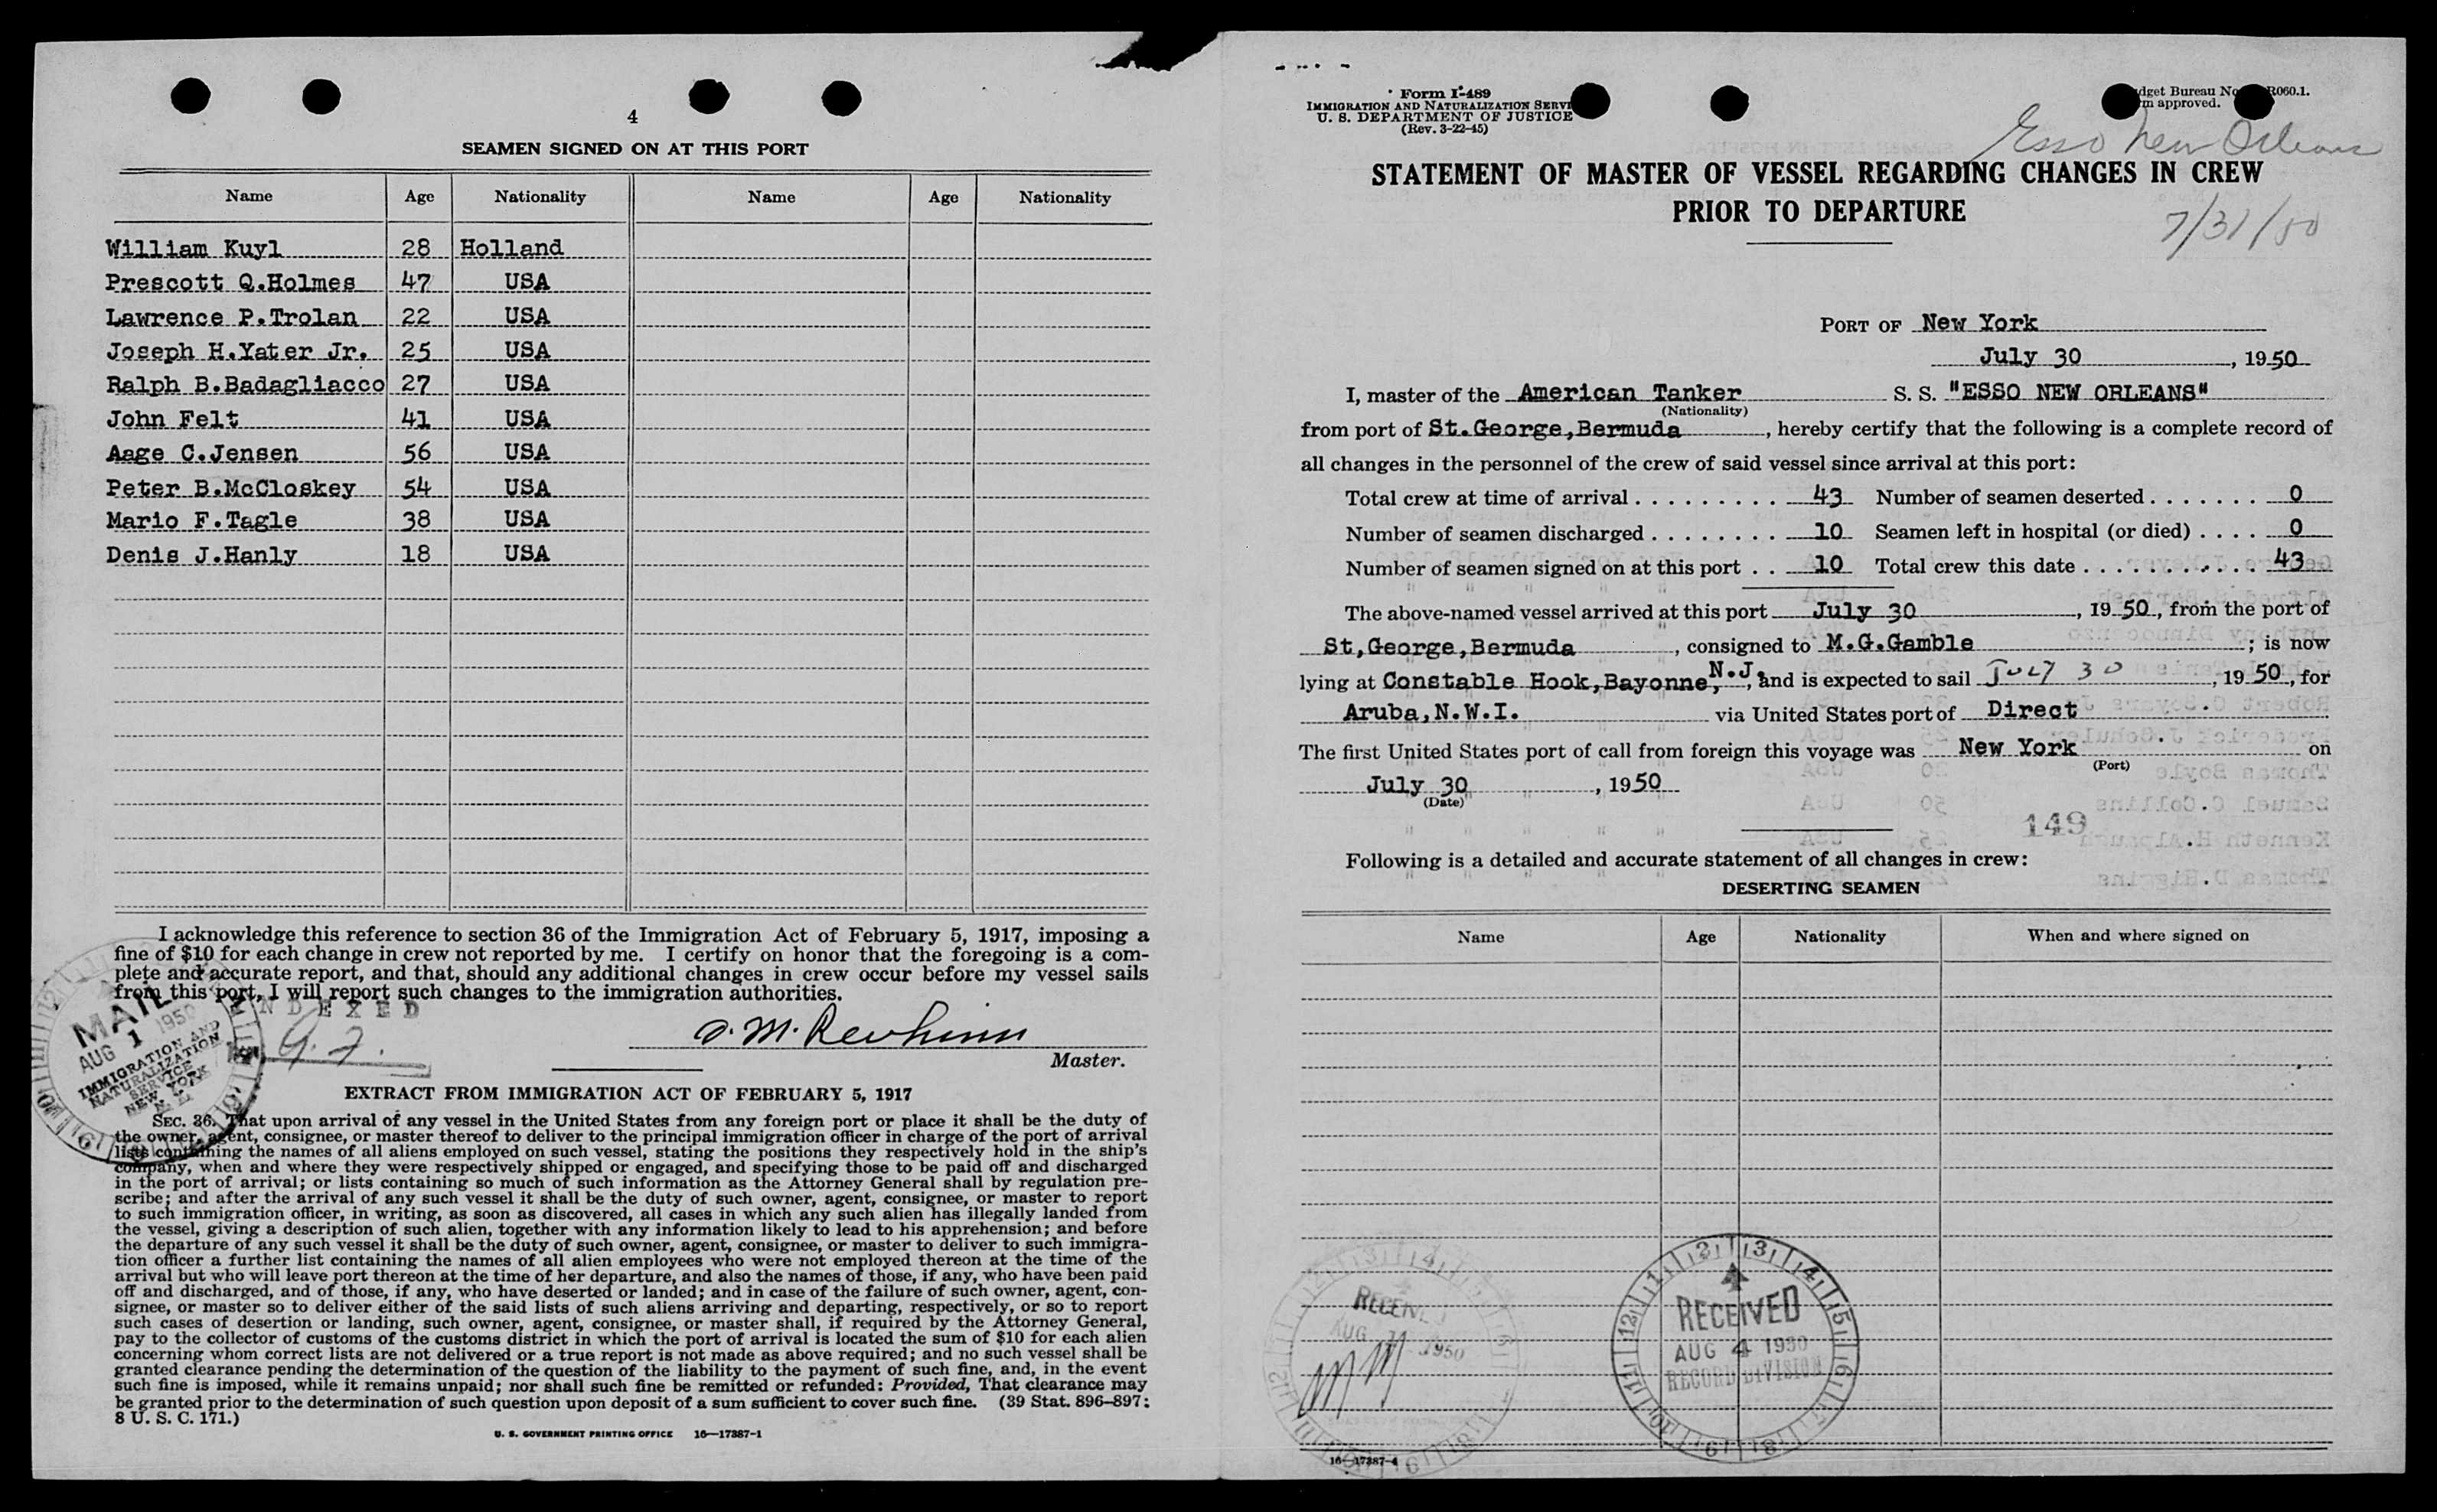 4
SEAMEN SIGNED ON AT THIS PORT
Name Age Nationality Name Age Nationality
William Kuyl 28 Holland
Prescott Q.Holmes 47 USA
Lawrence P.Trolan 22 USA
Joseph H.Yater Jr. 25 USA
Ralph B.Badagliacco 27 USA
John Felt 41 USA
Aage C.Jensen 56 USA
Peter B.McCloskey 54 USA
Mario F.Tagle 38 USA
Denis J.Hanly 18 USA
I acknowledge this reference to section 36 of the Immigration Act of February 5, 1917, imposing a
fine of $10 for each change in crew not reported by me. I certify on honor that the foregoing is a com-
plete and accurate report, and that, should any additional changes in crew occur before my vessel sails
from this port, I will report such changes to the immigration authorities.
INDEXED
MAIL
AUG 1 1950
IMMIGRATION AND
NATURALIZATION
SERVICE
NEW YORK
Master.
EXTRACT FROM IMMIGRATION ACT OF FEBRUARY 5, 1917
SEC. 36. That upon arrival of any vessel in the United States from any foreign port or place it shall be the duty of
the owner, agent, consignee, or master thereof to deliver to the principal immigration officer in charge of the port of arrival
lists containing the names of all aliens employed on such vessel, stating the positions they respectively hold in the ship's
company, when and where they were respectively shipped or engaged, and specifying those to be paid off and discharged
in the port of arrival; or lists containing so much of such information as the Attorney General shall by regulation pre-
scribe; and after the arrival of any such vessel it shall be the duty of such owner, agent, consignee, or master to report
to such immigration officer, in writing, as soon as discovered, all cases in which any such alien has illegally landed from
the vessel, giving a description of such alien, together with any information likely to lead to his apprehension; and before
the departure of any such vessel it shall be the duty of such owner, agent, consignee, or master to deliver to such immigra-
tion officer a further list containing the names of all alien employees who were not employed thereon at the time of the
arrival but who will leave port thereon at the time of her departure, and also the names of those, if any, who have been paid
off and discharged, and of those, if any, who have deserted or landed; and in case of the failure of such owner, agent, con-
signee, or master so to deliver either of the said lists of such aliens arriving and departing, respectively, or so to report
such cases of desertion or landing, such owner, agent, consignee, or master shall, if required by the Attorney General,
pay to the collector of customs of the customs district in which the port of arrival is located the sum of $10 for each alien
concerning whom correct lists are not delivered or a true report is not made as above required; and no such vessel shall be
granted clearance pending the determination of the question of the liability to the payment of such fine, and, in the event
such fine is imposed, while it remains unpaid; nor shall such fine be remitted or refunded: Provided, That clearance may
be granted prior to the determination of such question upon deposit of a sum sufficient to cover such fine. (39 Stat. 896–897;
8 U. S. C. 171.)
U. S. GOVERNMENT PRINTING OFFICE 16—17387-1
Form I-489
IMMIGRATION AND NATURALIZATION SERVI
U. S. DEPARTMENT OF JUSTICE
(Rev. 3-22-45)
dget Bureau No. R060.1.
m approved.
Esso New Orleans
STATEMENT OF MASTER OF VESSEL REGARDING CHANGES IN CREW
PRIOR TO DEPARTURE
7/31/50
PORT OF New York
July 30, 1950
I, master of the American Tanker S. S. "ESSO NEW ORLEANS"
(Nationality)
from port of St.George,Bermuda, hereby certify that the following is a complete record of
all changes in the personnel of the crew of said vessel since arrival at this port:
Total crew at time of arrival . . . . . . . . . 43 Number of seamen deserted . . . . . . . 0
Number of seamen discharged . . . . . . . . 10 Seamen left in hospital (or died) . . . . 0
Number of seamen signed on at this port . . 10 Total crew this date . . . . . . . . . . . 43
The above-named vessel arrived at this port July 30, 1950, from the port of
St,George,Bermuda, consigned to M.G.Gamble; is now
lying at Constable Hook,Bayonne,N.J., and is expected to sail JULY 30, 1950, for
Aruba,N.W.I. via United States port of Direct
The first United States port of call from foreign this voyage was New York on
(Port)
July 30, 1950
(Date)
149
Following is a detailed and accurate statement of all changes in crew:
DESERTING SEAMEN
Name Age Nationality When and where signed on
RECEIVED
AUG 1950
RECEIVED
AUG 4 1950
RECORD DIVISION
16—17387-1